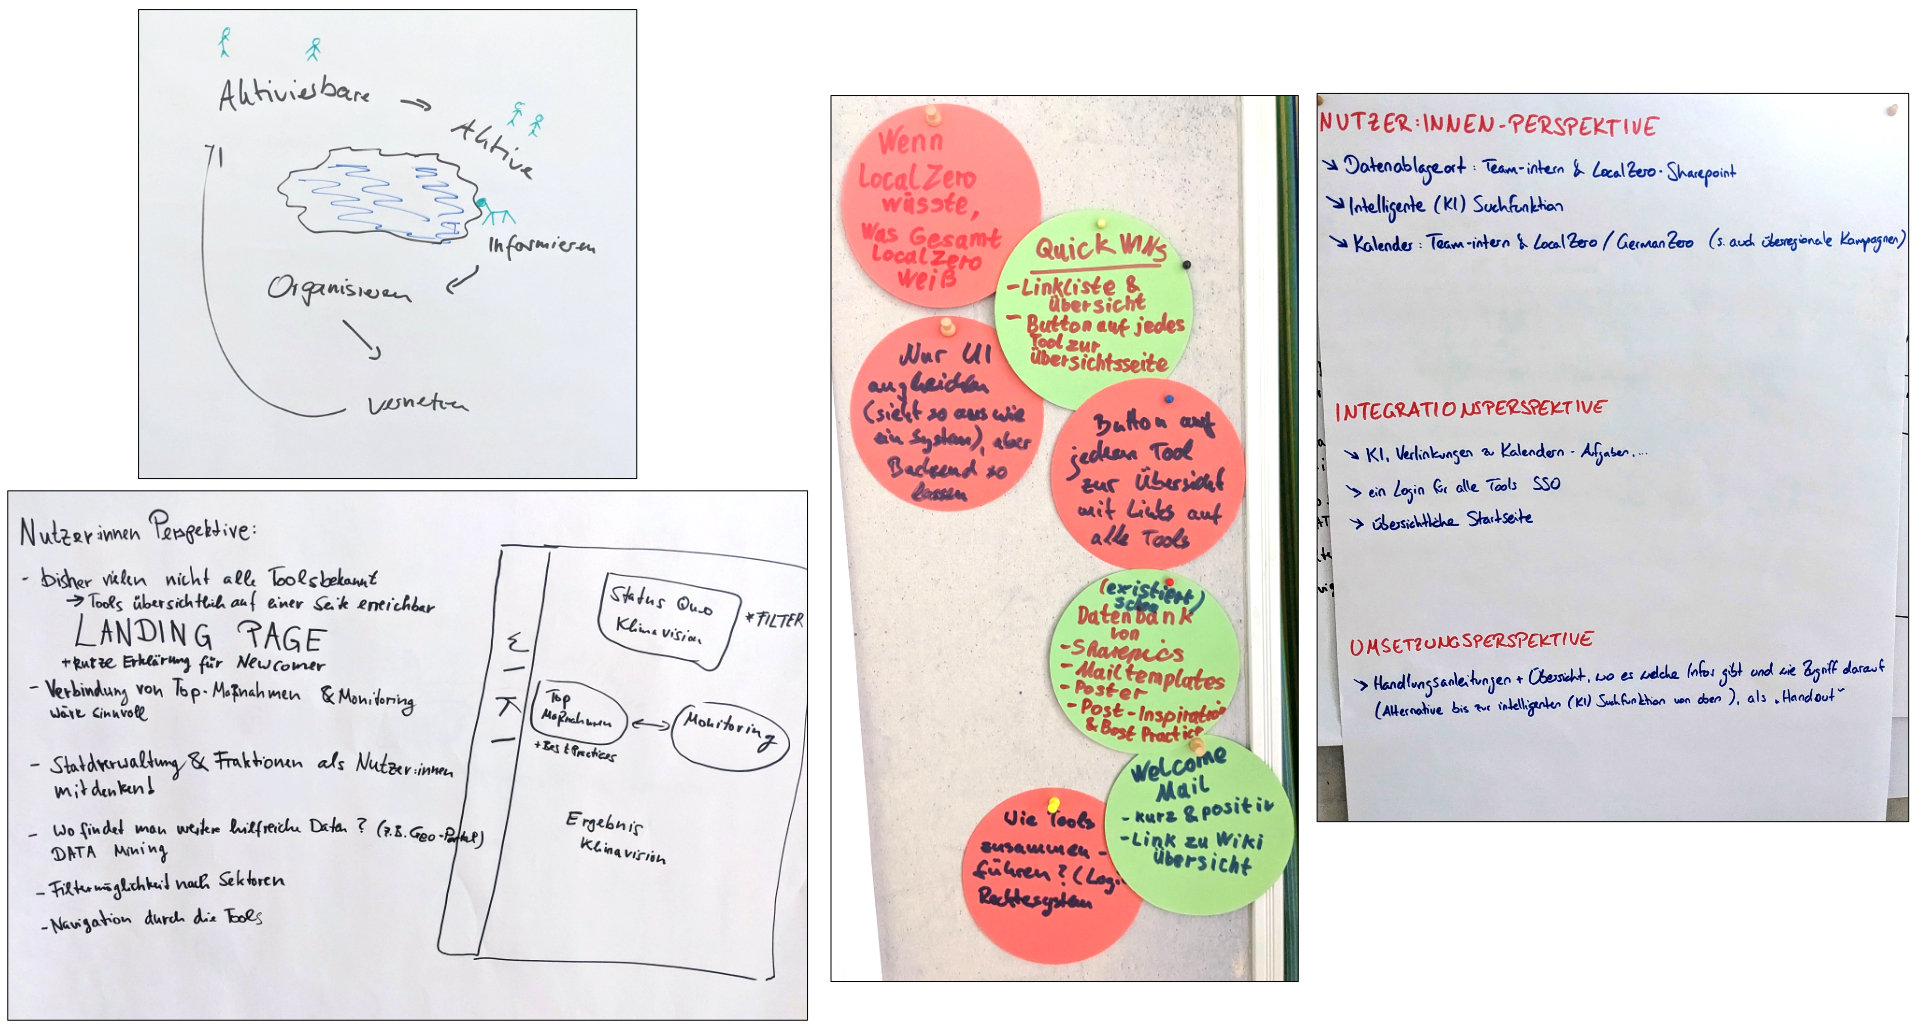 Aktivierbare
Aktive
Informieren
Organisieren
Vernetzen
Nutzer:innen Perspektive:
- bisher vielen nicht alle Tools bekannt
→ Tools übersichtlich auf einer Seite erreichbar
LANDING PAGE
+ kurze Erklärung für Newcomer
- Verbindung von Top-Maßnahmen & Monitoring
wäre sinnvoll
- Statdverwaltung & Fraktionen als Nutzer:innen
mitdenken!
- Wo findet man weitere hilfreiche Daten? (z.B. Geo-Portal)
DATA Mining
- Filtermöglichkeit nach Sektoren
- Navigation durch die Tools
Status Quo
Klimavision
* FILTER
Top
Maßnahmen
+ Best Practices
Monitoring
Ergebnis
Klimavision
Wenn
LocalZero
wüsste,
Was Gesamt
LocalZero
weiß
Quick WINs
- Linkliste &
Übersicht
- Button auf jedes
Tool zur
Übersichtsseite
Nur UI
angleichen
(sieht so aus wie
ein System), aber
Backend so
lassen
Button auf
jedem Tool
zur Übersicht
mit Links auf
alle Tools
(existiert)
schon
Datenbank
von
- Sharepics
- Mailtemplates
- Poster
- Post-Inspiration
& Best Practice
Welcome
Mail
- kurz & positiv
- Link zu Wiki
Übersicht
Wie Tools
zusammen-
führen? (Log
Rechtesystem
NUTZER:INNEN-PERSPEKTIVE
↘ Datenablageort: Team-intern & LocalZero-Sharepoint
↘ Intelligente (KI) Suchfunktion
↘ Kalender: Team-intern & LocalZero / GermanZero (s. auch überregionale Kampagnen)
INTEGRATIONSPERSPEKTIVE
↘ KI, Verlinkungen zu Kalendern - Aufgaben, ...
↘ ein Login für alle Tools SSO
↘ übersichtliche Startseite
UMSETZUNGSPERSPEKTIVE
↘ Handlungsanleitungen + Übersicht, wo es welche Infos gibt und wie Zugriff darauf
(Alternative bis zur intelligenten (KI) Suchfunktion von oben), als „Handout"